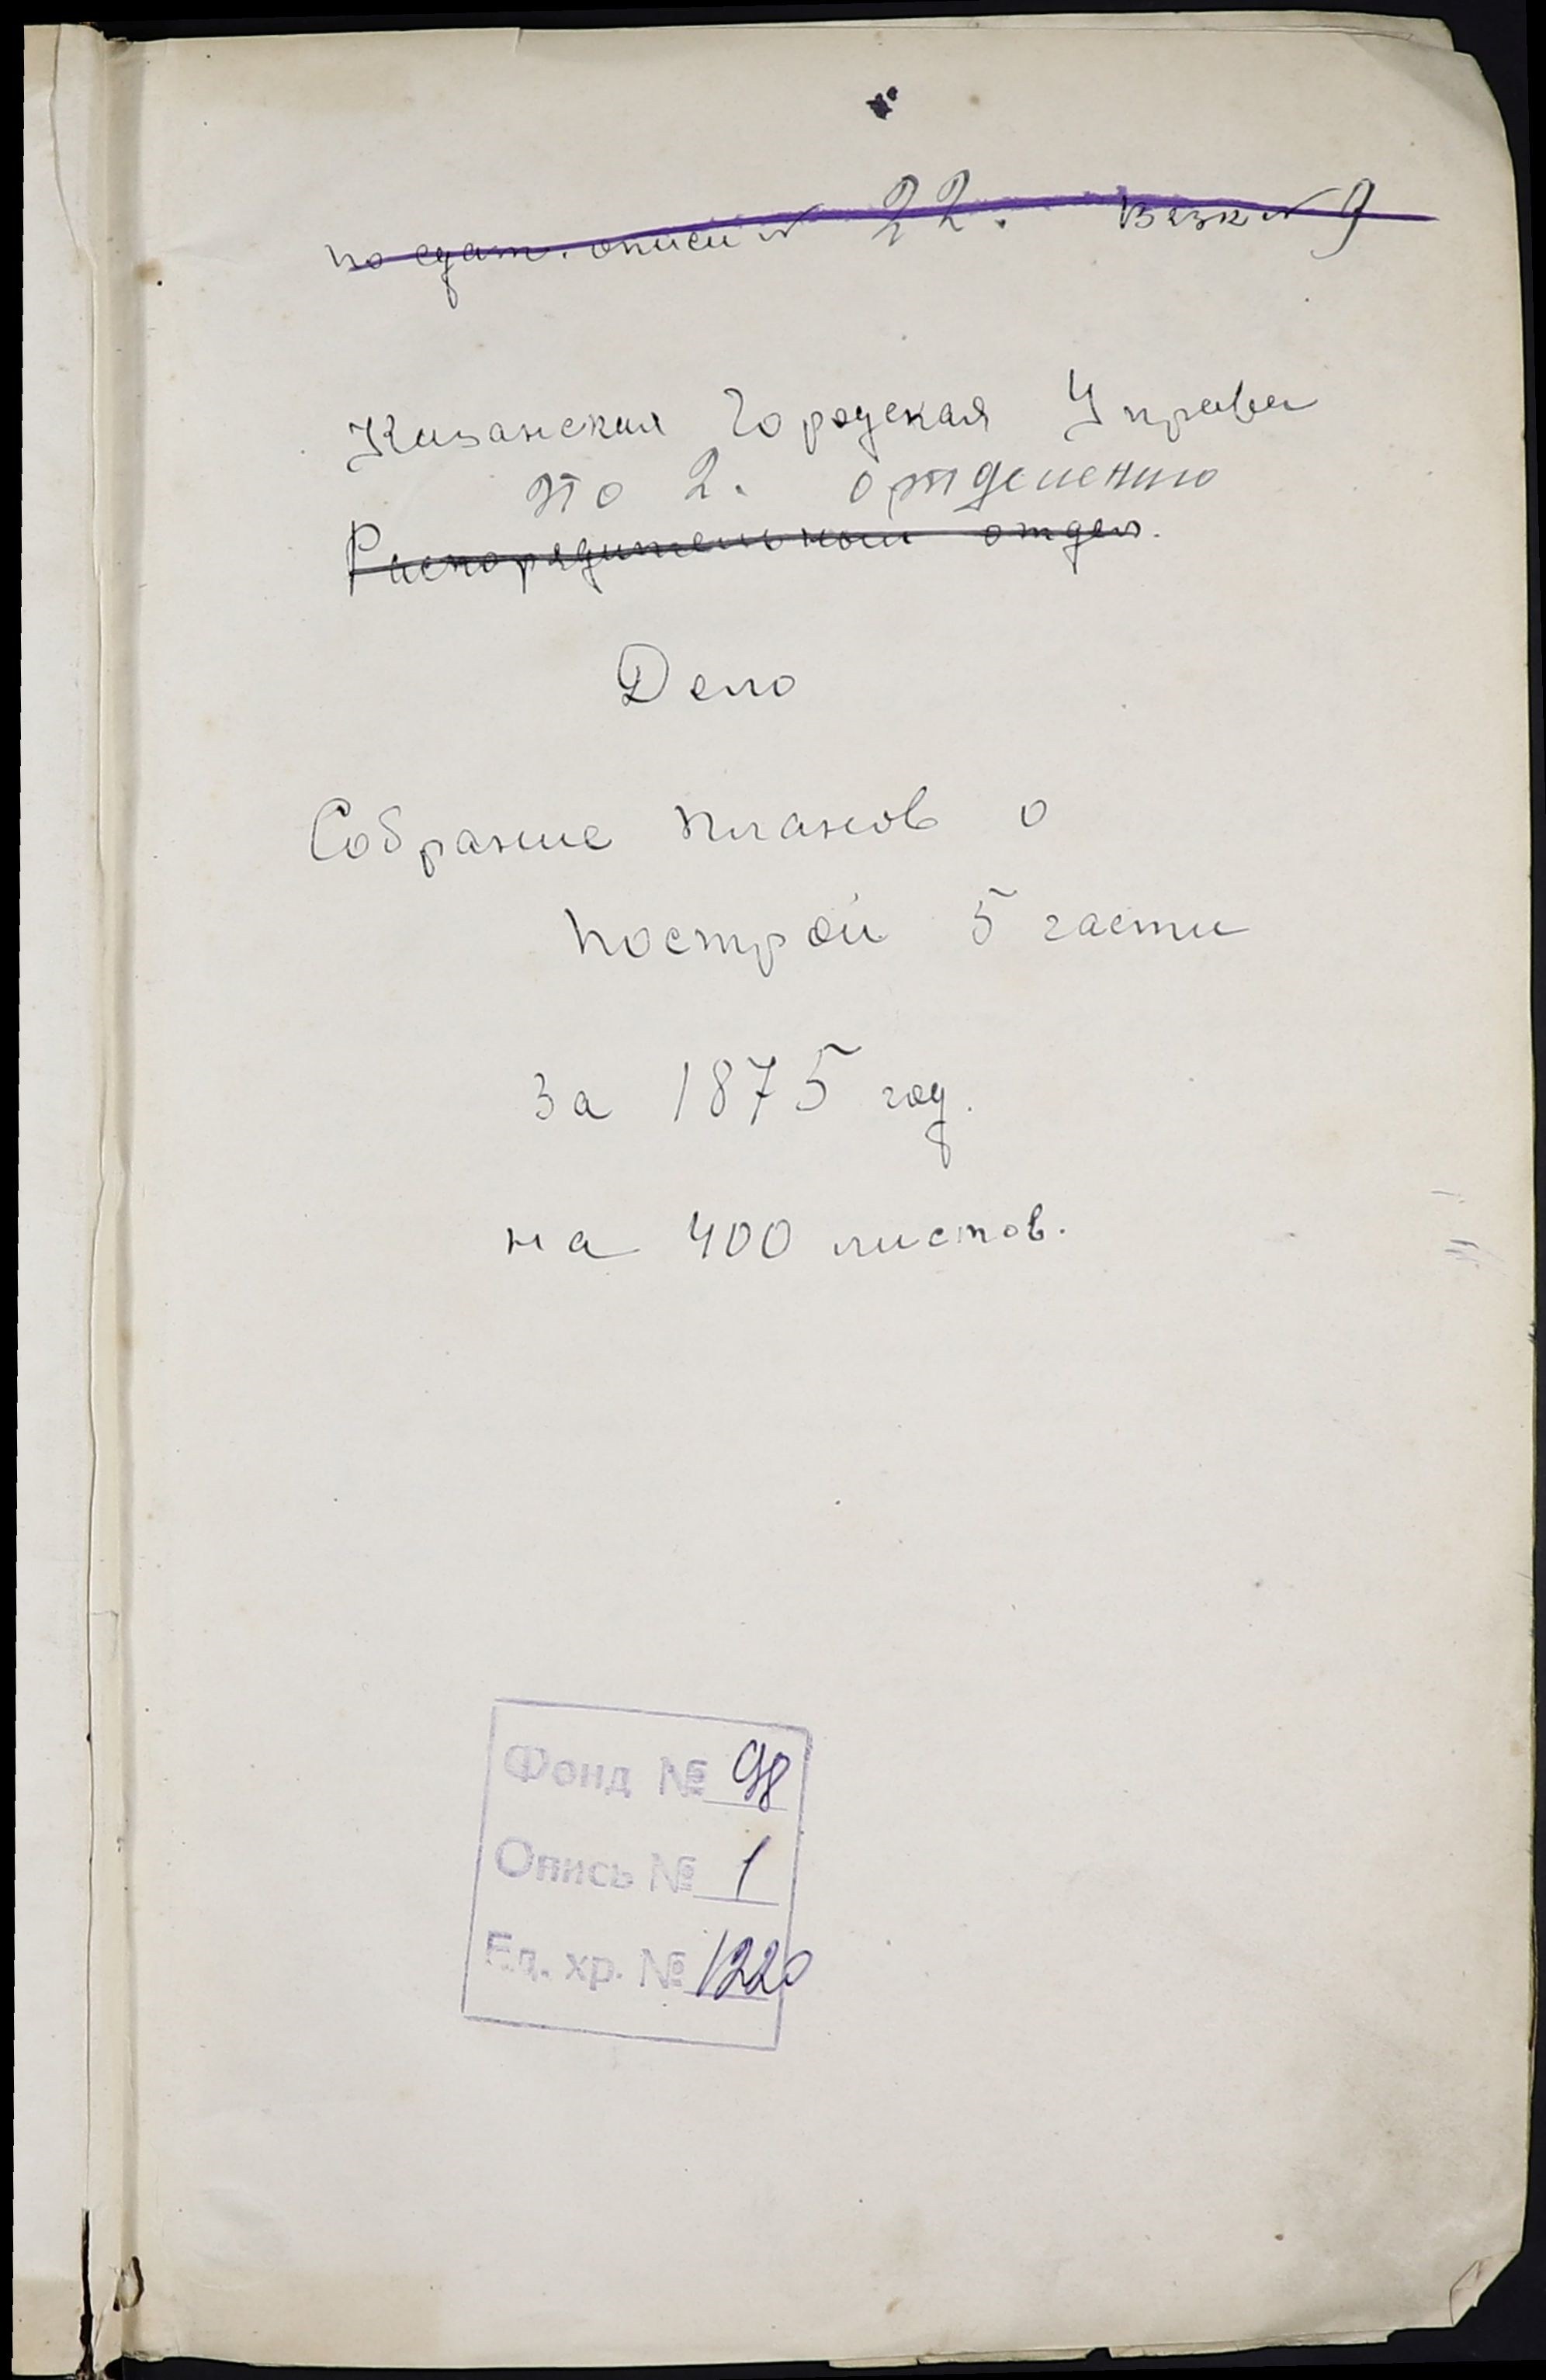 по сдат. описи № 22. Вязк № 9
Казанская Городская Управа
по 2. отделению
Распорядительный отдел.
Дело
Собрание планов о
построй 5 части
за 1875 год.
на 400 листов.
Фонд № 98
Опись № 1
Ед. хр. № 1220